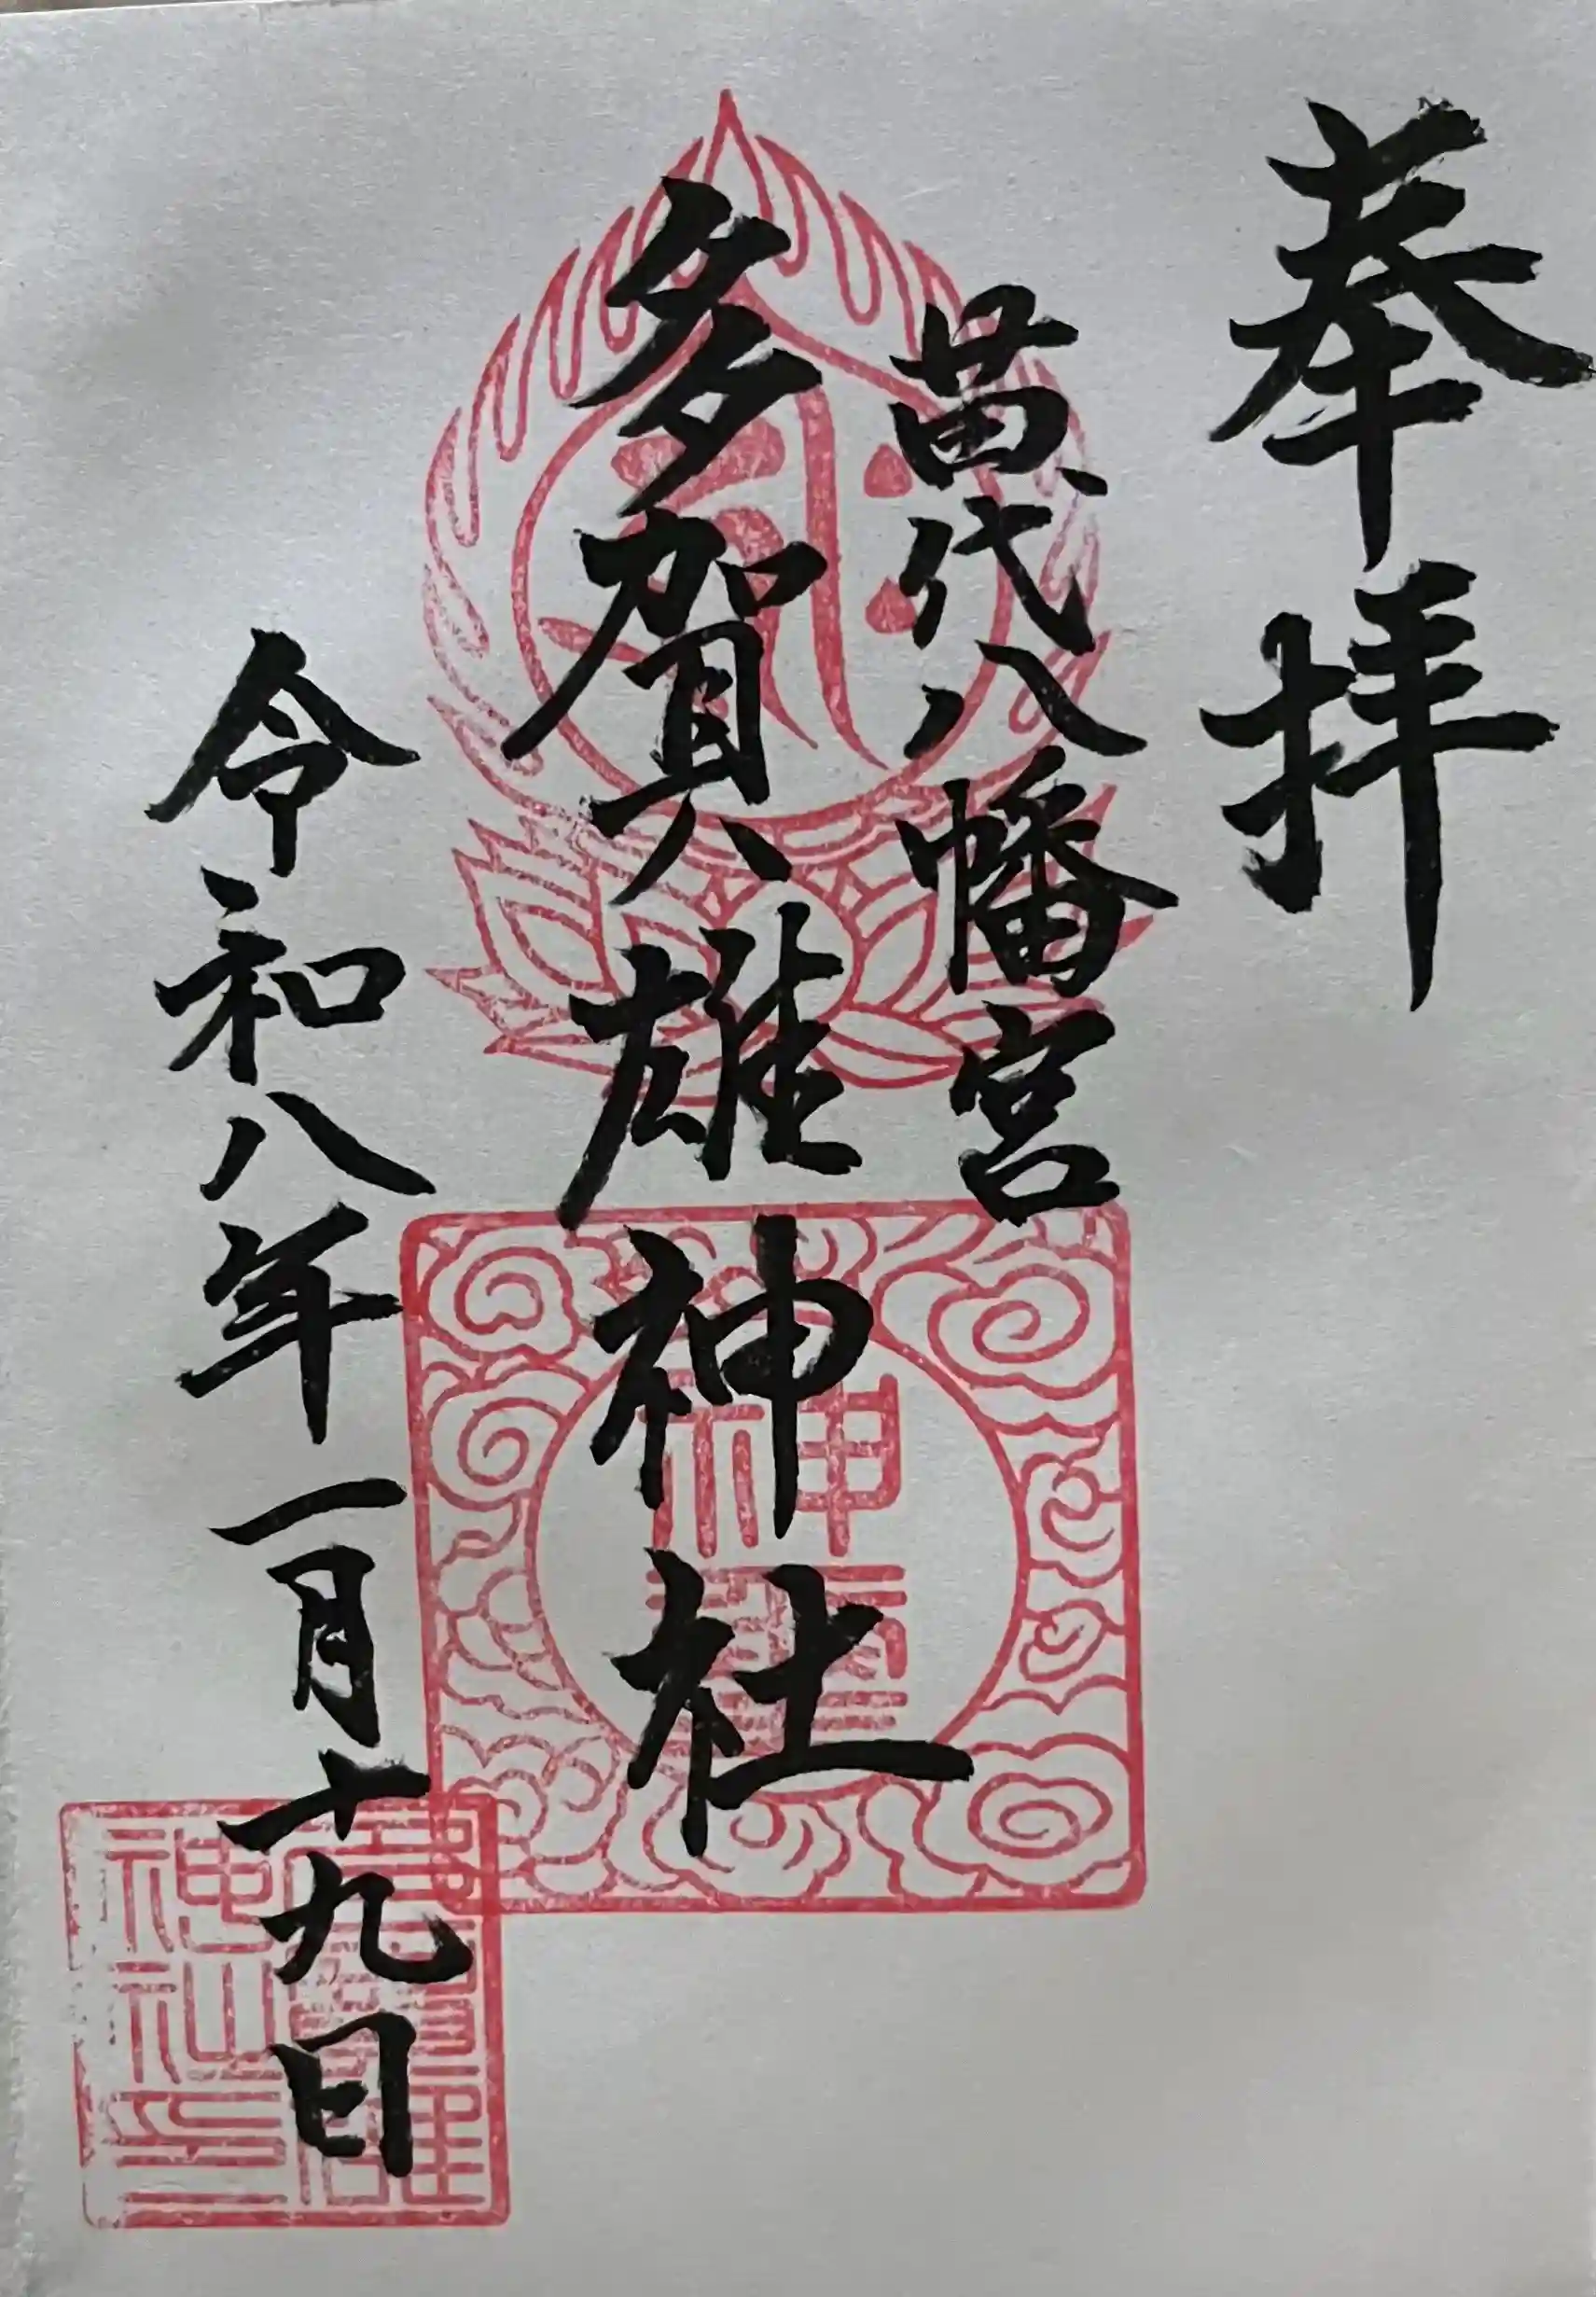 奉拝
苗代八幡宮
多賀雄神社
令和八年一月十九日
神璽
多賀雄
神社印